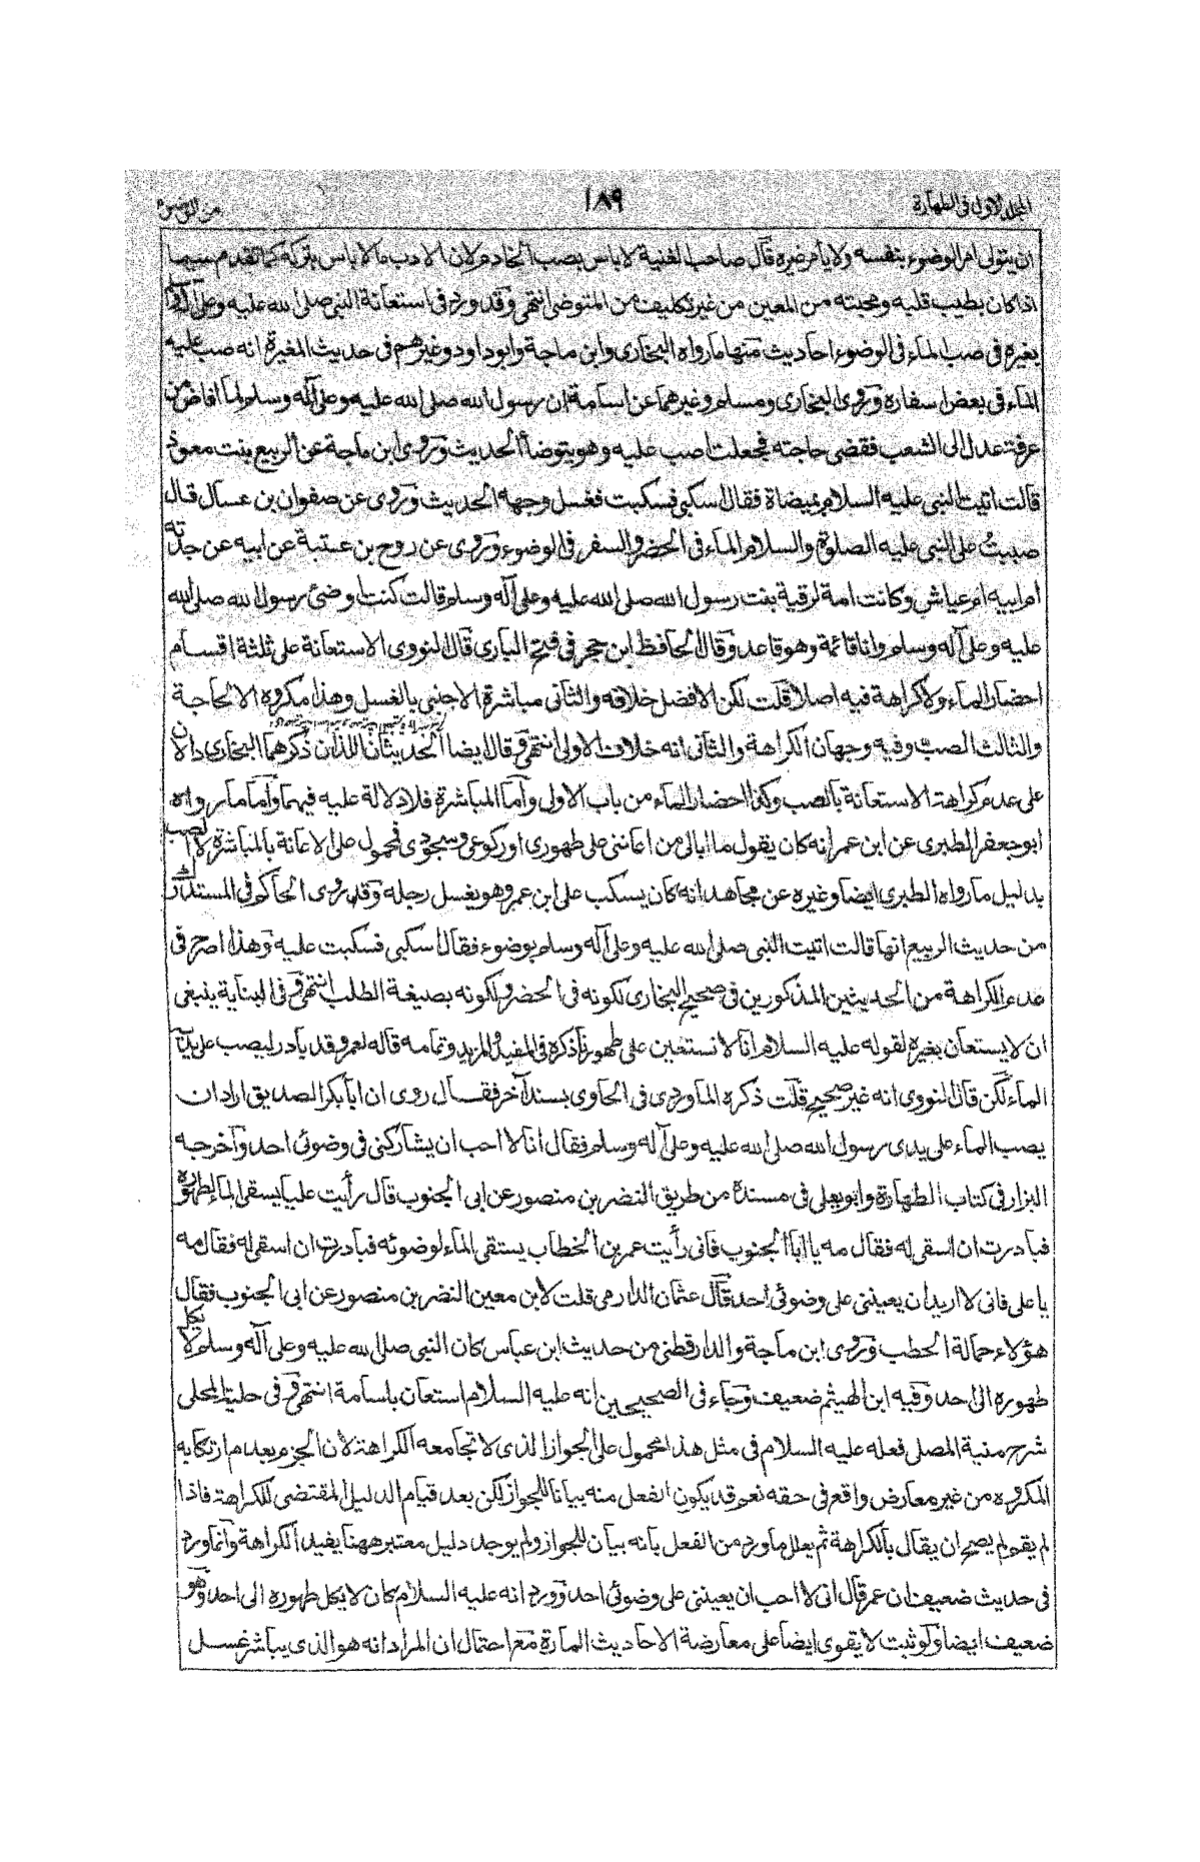 المجلد الاول فى الطهارة
١٨٩
ان يتولى امر الوضوء بنفسه ولا يأمر غيره قال صاحب الغنية لا باس بصب الخادم لان الادب ما لا باس بتركه كما تقدم سيما
اذا كان بطيب قلبه ومحبته من المعين من غير تكليف من المتوضى انتهى وقد ورد فى استعانة النبى صلى الله عليه وعلى آله
بغيره فى صب الماء فى الوضوء احاديث منها ما رواه البخارى وابن ماجة وابو داود وغيرهم فى حديث المغيرة انه صب عليه
الماء فى بعض اسفاره وروى البخارى ومسلم وغيرهما عن اسامة ان رسول الله صلى الله عليه وعلى آله وسلم لما افاض من
عرفة عدل الى الشعب فقضى حاجته فجعلت اصب عليه وهو يتوضأ الحديث وروى ابن ماجة عن الربيع بنت معوذ
قالت اتيت النبى عليه السلام بميضاة فقال اسكبى فسكبت فغسل وجهه الحديث وروى عن صفوان بن عسال قال
صببتُ على النبى عليه الصلوة والسلام الماء فى الحضر والسفر فى الوضوء وروى عن روح بن عتبة عن ابيه عن جدته
ام ابيه ام عياش وكانت امة لرقية بنت رسول الله صلى الله عليه وعلى آله وسلم قالت كنت اوضئ رسول الله صلى الله
عليه وعلى آله وسلم وانا قائمة وهو قاعد وقال الحافظ ابن حجر فى فتح البارى قال النووى الاستعانة على ثلثة اقسام
احضار الماء ولا كراهة فيه اصلا قلت لكن الافضل خلافه والثانى مباشرة الاجنبى بالغسل وهذا مكروه الا لحاجة
والثالث الصب وفيه وجهان الكراهة والثانى انه خلاف الاولى انتهى وقال ايضا الحديثان اللذان ذكرهما البخارى دالان
على عدم كراهة الاستعانة بالصب وكذا احضار الماء من باب الاولى وأما المباشرة فلا دلالة عليه فيهما وأما ما رواه
ابو جعفر الطبرى عن ابن عمر انه كان يقول ما ابالى من اعاننى على طهورى او ركوعى وسجودى فمحمول على الاعانة بالمباشرة لا الصب
بدليل ما رواه الطبرى ايضا وغيره عن مجاهد انه كان يسكب على ابن عمر وهو يغسل رجليه وقد روى الحاكم فى المستدرك
من حديث الربيع انها قالت اتيت النبى صلى الله عليه وعلى آله وسلم بوضوء فقال اسكبى فسكبت عليه وهذا اصرح فى
عدم الكراهة من الحديثين المذكورين فى صحيح البخارى لكونه فى الحضر ولكونه بصيغة الطلب انتهى وفى البناية ينبغى
ان لا يستعان بغيره لقوله عليه السلام انا لا نستعين على طهورنا ذكره فى المفيد والمزيد وتمامه قاله لعمر وقد بادر ليصب على يديه
الماء لكن قال النووى انه غير صحيح قلت ذكره الماوردى فى الحاوى بسند آخر فقال روى ان ابا بكر الصديق اراد ان
يصب الماء على يدى رسول الله صلى الله عليه وعلى آله وسلم فقال انا لا احب ان يشاركنى فى وضوئى احد وآخرجه
البزار فى كتاب الطهارة وابو يعلى فى مسنده من طريق النضر بن منصور عن ابى الجنوب قال رأيت عليا يسقى الماء لطهوره
فبادرت ان اسقى له فقال مه يا ابا الجنوب فانى رأيت عمر بن الخطاب يستقى الماء لوضوئه فبادرت ان اسقى له فقال مه
يا على فانى لا اريد ان يعيننى على وضوئى احد قال عثمان الدارمى قلت لابن معين النضر بن منصور عن ابى الجنوب فقال
هؤلاء حمالة الحطب وروى ابن ماجة والدارقطنى من حديث ابن عباس كان النبى صلى الله عليه وعلى آله وسلم لا يكل
طهوره الى احد وفيه ابن الهيثم ضعيف وجاء فى الصحيحين انه عليه السلام استعان باسامة انتهى وفى حلية المحلى
شرح منية المصلى فعله عليه السلام فى مثل هذا محمول على الجواز الذى لا تجامعه الكراهة لان الجزم بعدم ارتكابه
المكروه من غير معارض واقع فى حقه نعم قد يكون الفعل منه بيانا للجواز لكن بعد قيام الدليل المقتضى للكراهة فاذا
لم يقم لم يصح ان يقال بالكراهة ثم يعلل ما ورد من الفعل بانه بيان للجواز ولم يوجد دليل معتبر ههنا يفيد الكراهة وانما ورد
فى حديث ضعيف ان عمر قال انى لا احب ان يعيننى على وضوئى احد وورد انه عليه السلام كان لا يكل طهوره الى احد وهو
ضعيف ايضا ولو ثبت لا يقوى ايضا على معارضة الاحاديث المارة مع احتمال ان المراد انه هو الذى يباشر غسل